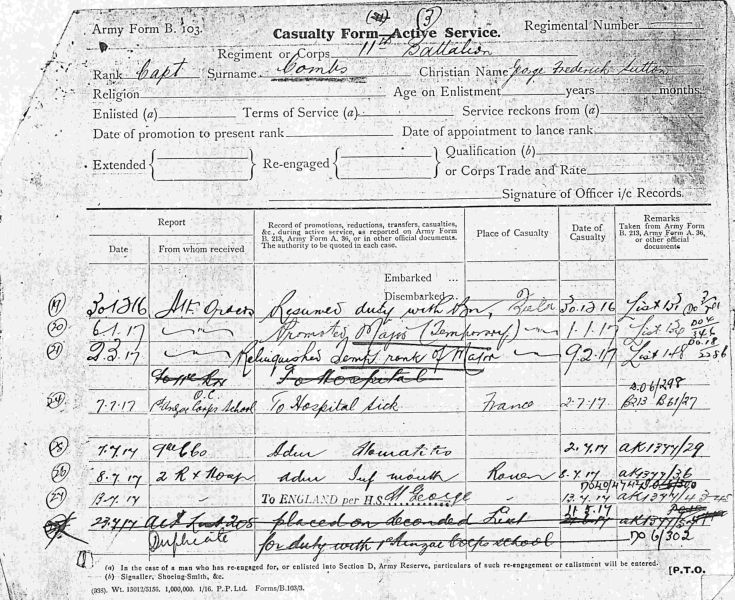 (3)
Army Form B. 103.
Casualty Form—Active Service.
Regimental Number
Regiment or Corps 11th Battalion
Rank Capt Surname Combs Christian Name George Frederick Sutton
Religion Age on Enlistment years months.
Enlisted (a) Terms of Service (a) Service reckons from (a)
Date of promotion to present rank Date of appointment to lance rank
Extended Re-engaged Qualification (b)
or Corps Trade and Rate
Signature of Officer i/c Records.
Report
Date From whom received
Record of promotions, reductions, transfers, casualties, &c., during active service, as reported on Army Form B. 213, Army Form A. 36, or in other official documents. The authority to be quoted in each case.
Place of Casualty
Date of Casualty
Remarks
Taken from Army Form B. 213, Army Form A. 36, or other official documents
Embarked ...
Disembarked ...
(19) 30.12.16 AIF Orders Resumed duty with Bn, Field 30.12.16 List 131
(20) 6.1.17 Promoted Major (Temporary) 1.1.17 List 130
(21) 2.3.17 Relinquished Temp rank of Major 9.2.17 List 148
To Hospital
(24) 7.7.17 O.C. 1st Anzac Corps School To Hospital Sick France 2.7.17 B213
7.7.17 Adm 2.7.17 AK1377/29
(26) 8.7.17 2 R X Hosp adm Inf mouth Rouen 8.7.17 AK1377/36
(27) 13.7.17 To ENGLAND per H.S. St George 13.7.17
23.7.17 placed on seconded List
Duplicate for duty with 1st Anzac Corps school DO 6/302
(a) In the case of a man who has re-engaged for, or enlisted into Section D, Army Reserve, particulars of such re-engagement or enlistment will be entered.
(b) Signaller, Shoeing-Smith, &c.
[P.T.O.
(938). Wt. 15012/3156. 1,000,000. 1/16. P.P. Ltd. Forms/B.103/3.